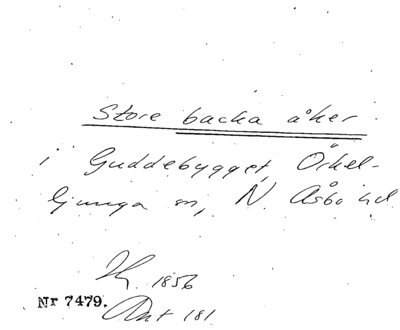 Store backa åker
i Guddebygget, Örkel-
ljunga sn, N. Åsbo hd
Hy. 1856
Nr 7479.
Akt 181